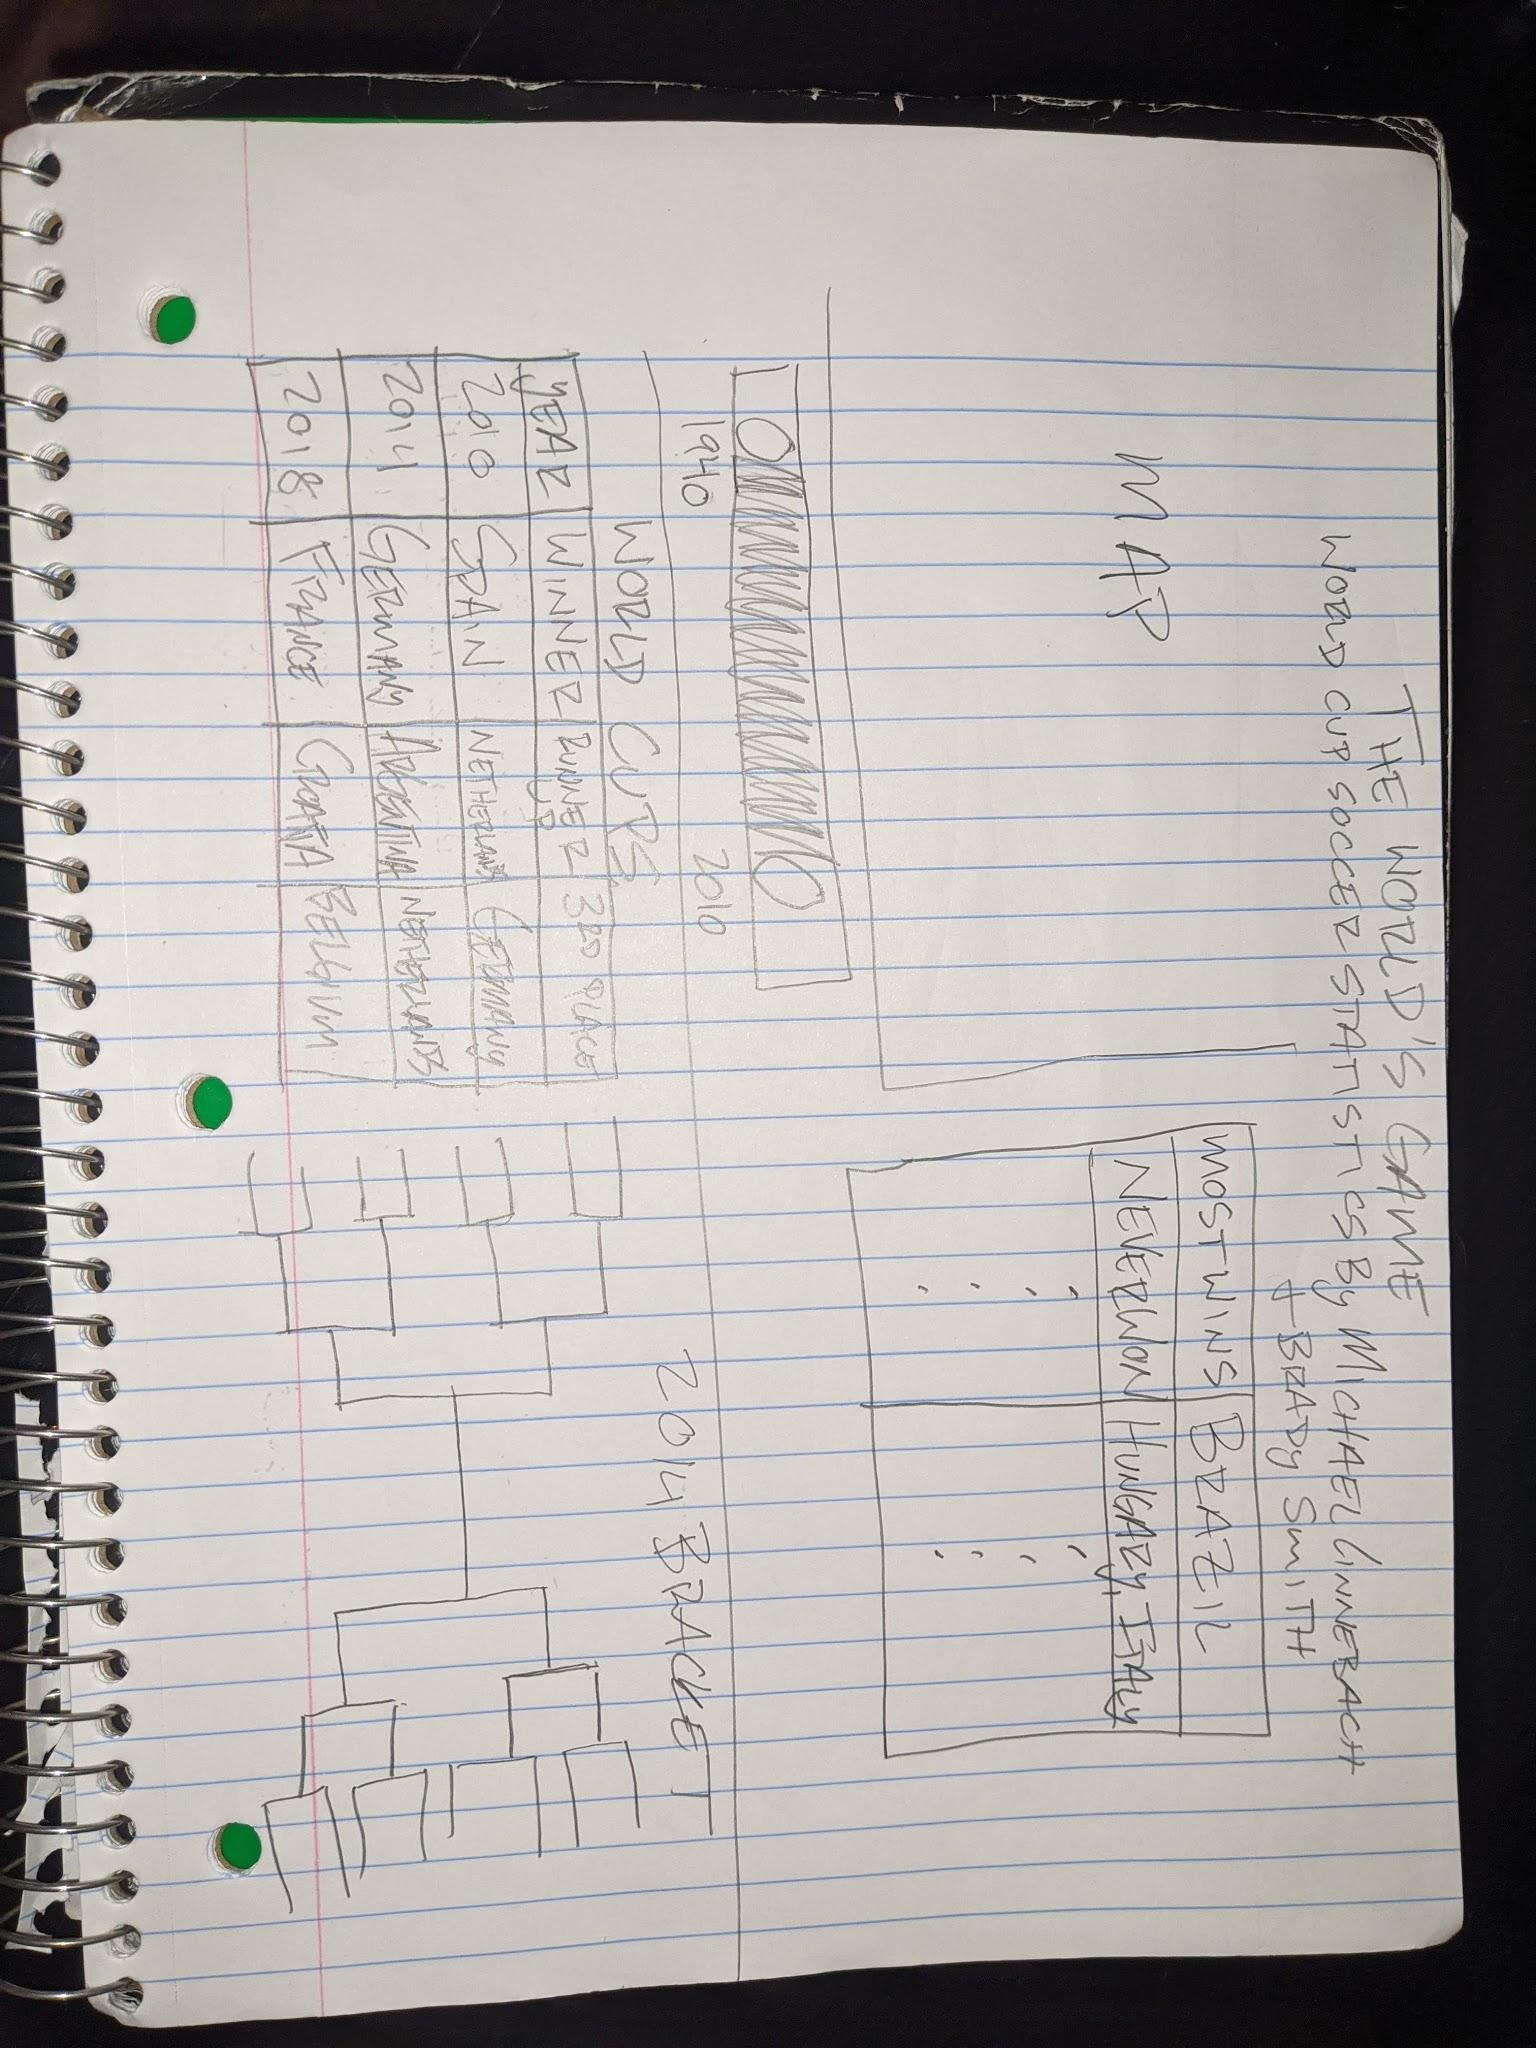 THE WORLD'S GAME
WORLD CUP SOCCER STATISTICS By MICHAEL LINNEBACH
+ BRADY SMITH
MAP
MOST WINS BRAZIL
NEVER WON HUNGARY, ITALY
1940 2010
WORLD CUPS
YEAR WINNER RUNNER UP 3RD PLACE
2010 SPAIN NETHERLANDS GERMANY
2014 GERMANY ARGENTINA NETHERLANDS
2018 FRANCE CROATIA BELGIUM
2014 BRACKET